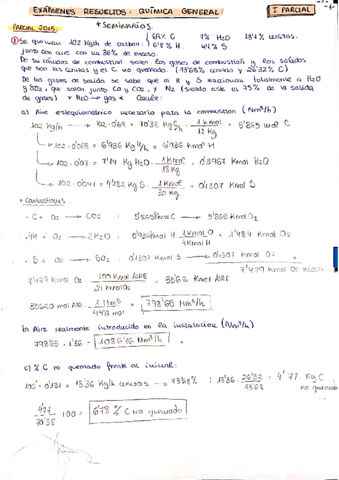 EXÁMENES RESUELTOS: QUÍMICA GENERAL
I PARCIAL
PARCIAL 2015
+ SEMINARIOS.
① Se queman 102 Kg/h de carbon: 69% C 7% H2O 13'1% cenizas.
6'8% H 4'1% S
junto con aire con un 36% de exceso.
De su cámara de combustión salen los gases de combustión y los sólidos
que son las cenizas y el C no quemado. (73'68% cenizas y 26'32% C)
De los gases de salida se sabe que H y S reaccionan totalmente a H2O
y SO2, que salen junto CO y CO2, y N2 (siendo este el 75% de la salida
de gases) + H2O → gas. Calcule:
a) Aire estequiométrico necesario para la combustión (Nm³/h)
102 Kg/h → 102·0'69 = 70'38 Kg C/h · 1 Kmol / 12 Kg = 5'865 Kmol C
→ 102·0'068 = 6'936 Kg H/h = 6'936 Kmol H
→ 102·0'07 = 7'14 Kg H2O · 1 Kmol / 18 Kg = 0'3967 Kmol H2O
→ 102·0'041 = 4'182 Kg S · 1 Kmol = 0'1307 Kmol S
* Combustions
· C + O2 → CO2 : 5'865 Kmol C → 5'865 Kmol O2
· 4H + O2 → 2H2O : 6'936 Kmol H · 1 Kmol O / 4 Kmol H = 1'484 Kmol O2
· S + O2 → SO2 : 0'1307 Kmol S → 0'1307 Kmol O2
7'479 Kmol O2
7'479 Kmol O2 · 100 Kmol AIRE / 21 Kmol O2 = 35'62 Kmol AIRE
35620 mol AIRE · 1 Nm³ / = 798'65 Nm³/h
b) Aire realmente introducido en la instalación (Nm³/h)
798'65 · 1'36 = 1086'16 Nm³/h
c) % C no quemado frente al inicial:
102 · 0'131 = 13'36 Kg/h cenizas → 73'68% : 13'36 · 26'32 / 73'68 = 4'77 Kg C
no quemado
4'77 / 70'38 · 100 = 6'78 % C no quemado